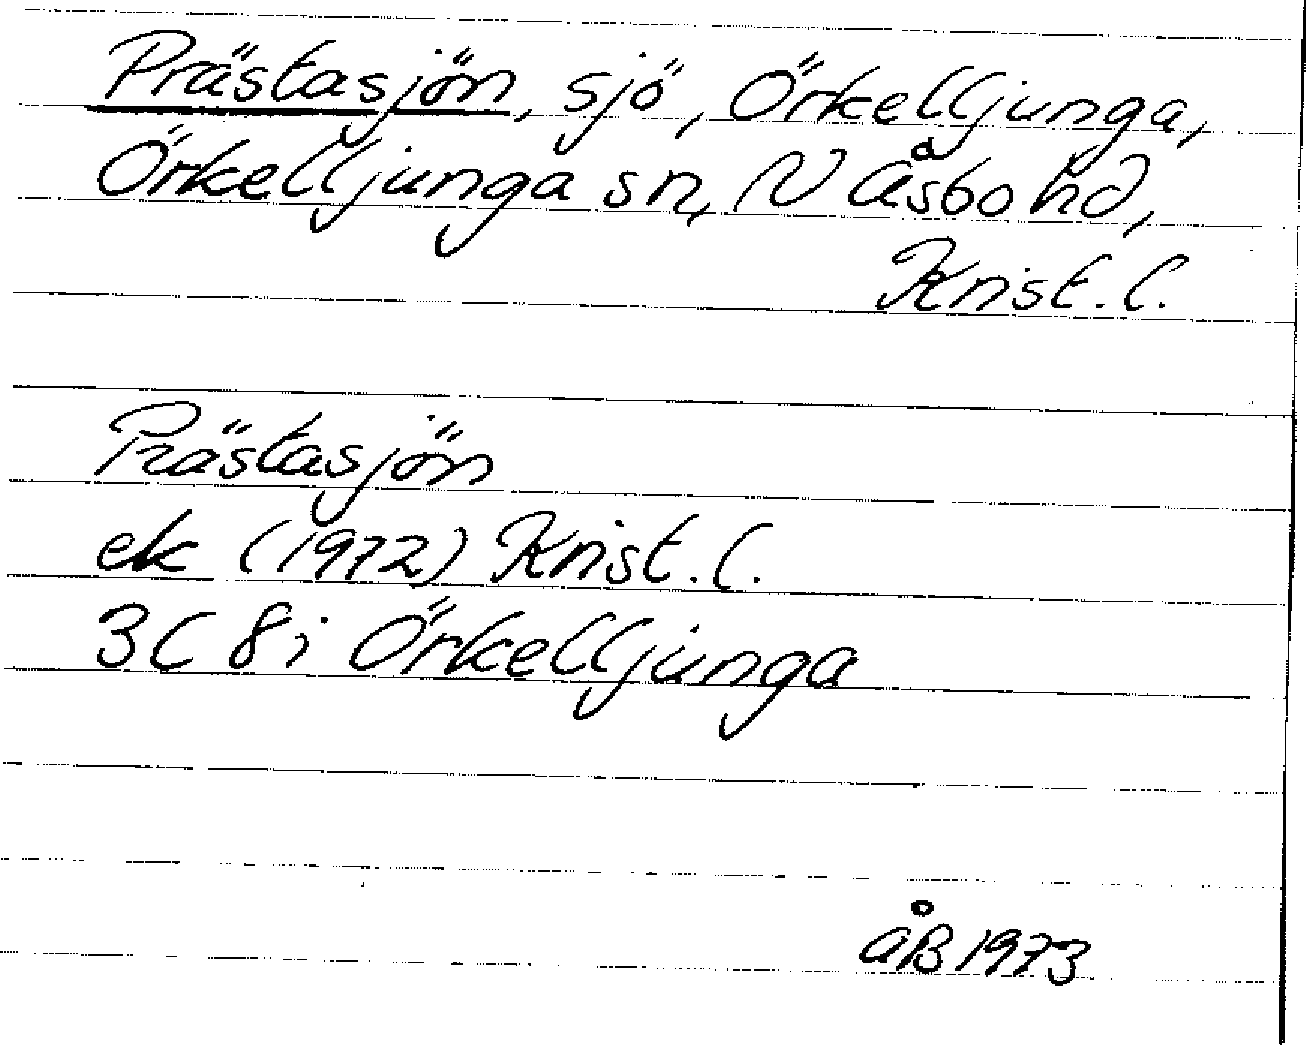 Prästasjön, sjö, Örkelljunga,
Örkelljunga sn, N Åsbo hd,
Krist. l.
Prästasjön
ek (1972) Krist. l.
3C 8i Örkelljunga
ÅB 1973